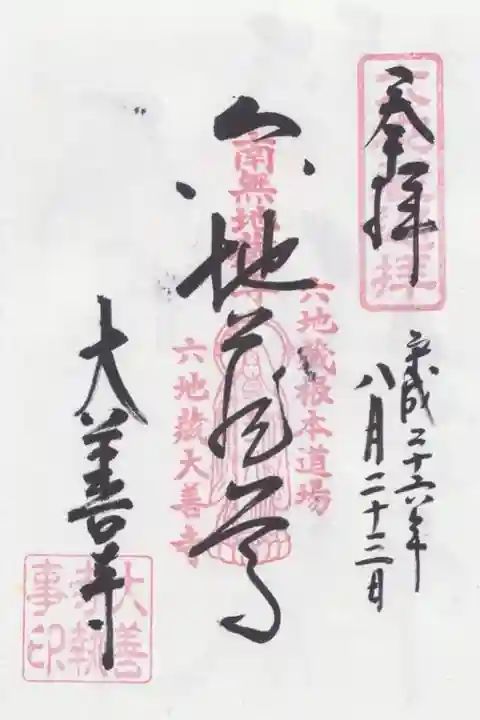 奉拝
平成二十六年
八月二十三日
六地蔵尊
大善寺
南無地蔵
六地蔵根本道場
六地蔵大善寺
大善
執
事印